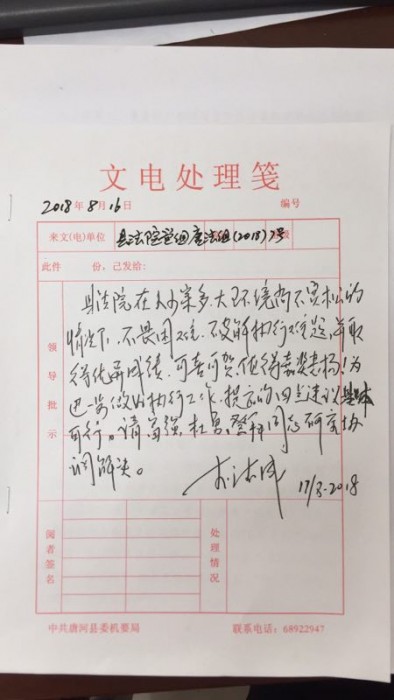 文电处理笺
2018年8月16日 编号
来文(电)单位 县法院党组唐法组(2018)7号
此件 份，已发给:
领导批示
县法院在人少案多、大环境尚不宽松的
情况下，不畏困难、破解执行难题，并取
得优异成绩，可喜可贺，值得嘉奖表扬!为
进一步做好执行工作，提出的四点建议基本
可行。请 同志研究协
调解决。
17/8-2018
阅者签名
处理情况
中共唐河县委机要局 联系电话：68922947